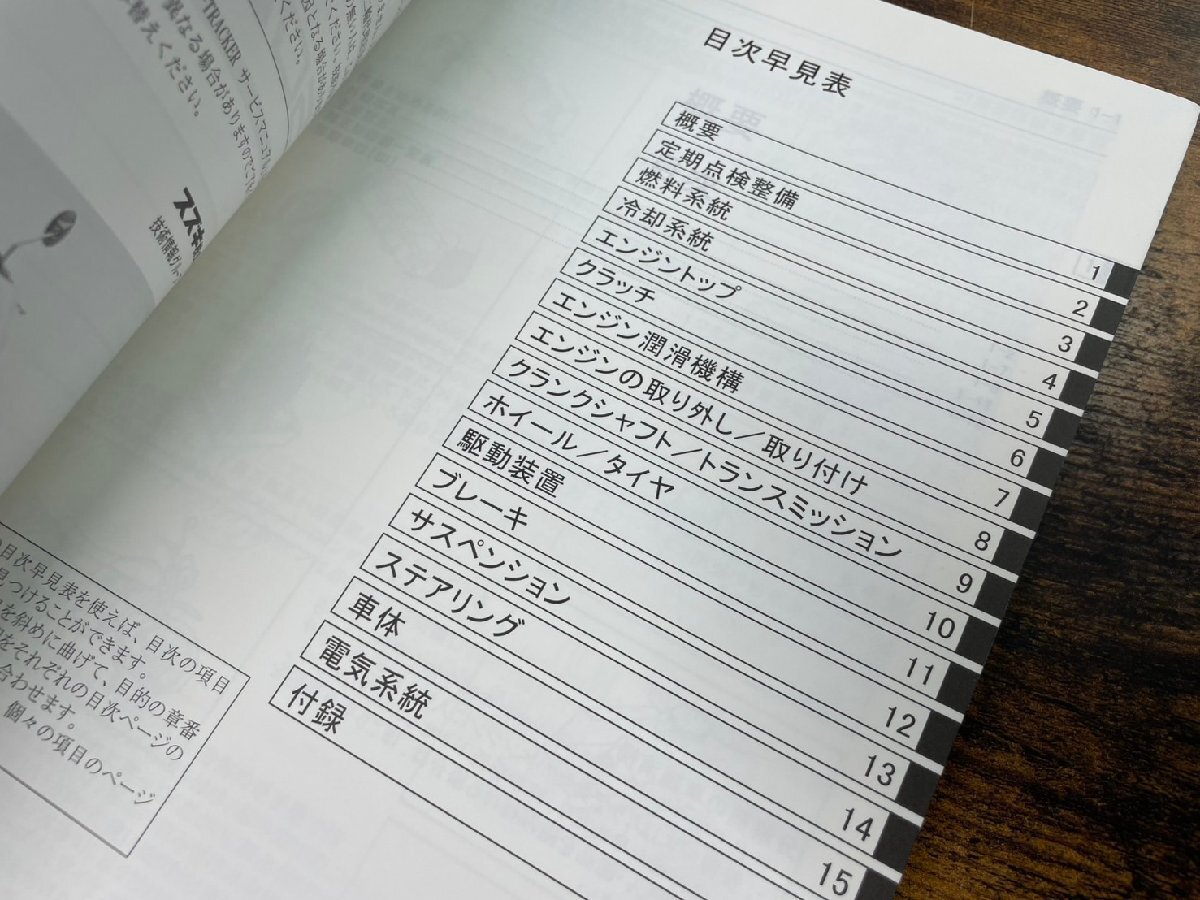 TRACKER サービスマニュアル
異なる場合がありますのでご
替えください。
ください。
目次早見表を使えば、目次の項目
見つけることができます。
を斜めに曲げて、目的の章番
をそれぞれの目次ページの
合わせます。
個々の項目のページ
目次早見表
概要 1
定期点検整備 2
燃料系統 3
冷却系統 4
エンジントップ 5
クラッチ 6
エンジン潤滑機構 7
エンジンの取り外し／取り付け 8
クランクシャフト／トランスミッション 9
ホイール／タイヤ 10
駆動装置 11
ブレーキ 12
サスペンション 13
ステアリング 14
車体 15
電気系統
付録